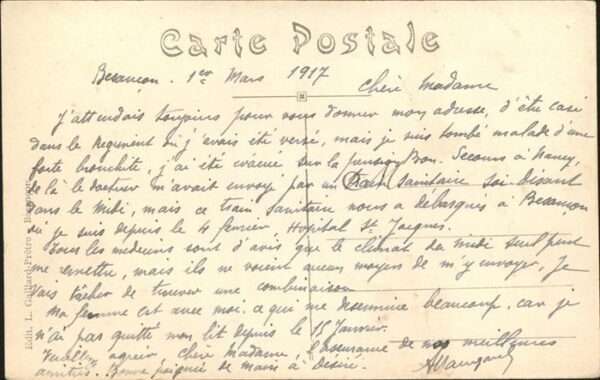 Carte Postale
Besançon. 1er Mars 1917
Chère Madame
J'attendais toujours pour vous donner mon adresse, d'être casé
dans le Regiment où j'avais été versé, mais je suis tombé malade d'une
forte bronchite, j'ai été évacué sur la Bon. Secours à Nancy,
de là le docteur m'avait envoyé par un train sanitaire soi-disant
dans le Midi, mais ce train sanitaire nous a debarqués à Besançon
où je suis depuis le 4 fevrier, Hopital St Jacques.
Tous les medecins sont d'avis que le climat du midi seul peut
me remettre, mais ils ne voient aucun moyen de m'y envoyer, Je
vais tacher de trouver une combinaison
Ma femme est avec moi. ce qui me beaucoup, car je
n'ai pas quitté mon lit depuis le 15 Janvier.
Veuillez agreer chere Madame, l'assurance de nos meilleures
amitiés. Bonne poignée de mains à désiré.
Edit. L. Gaillard-Prêtre